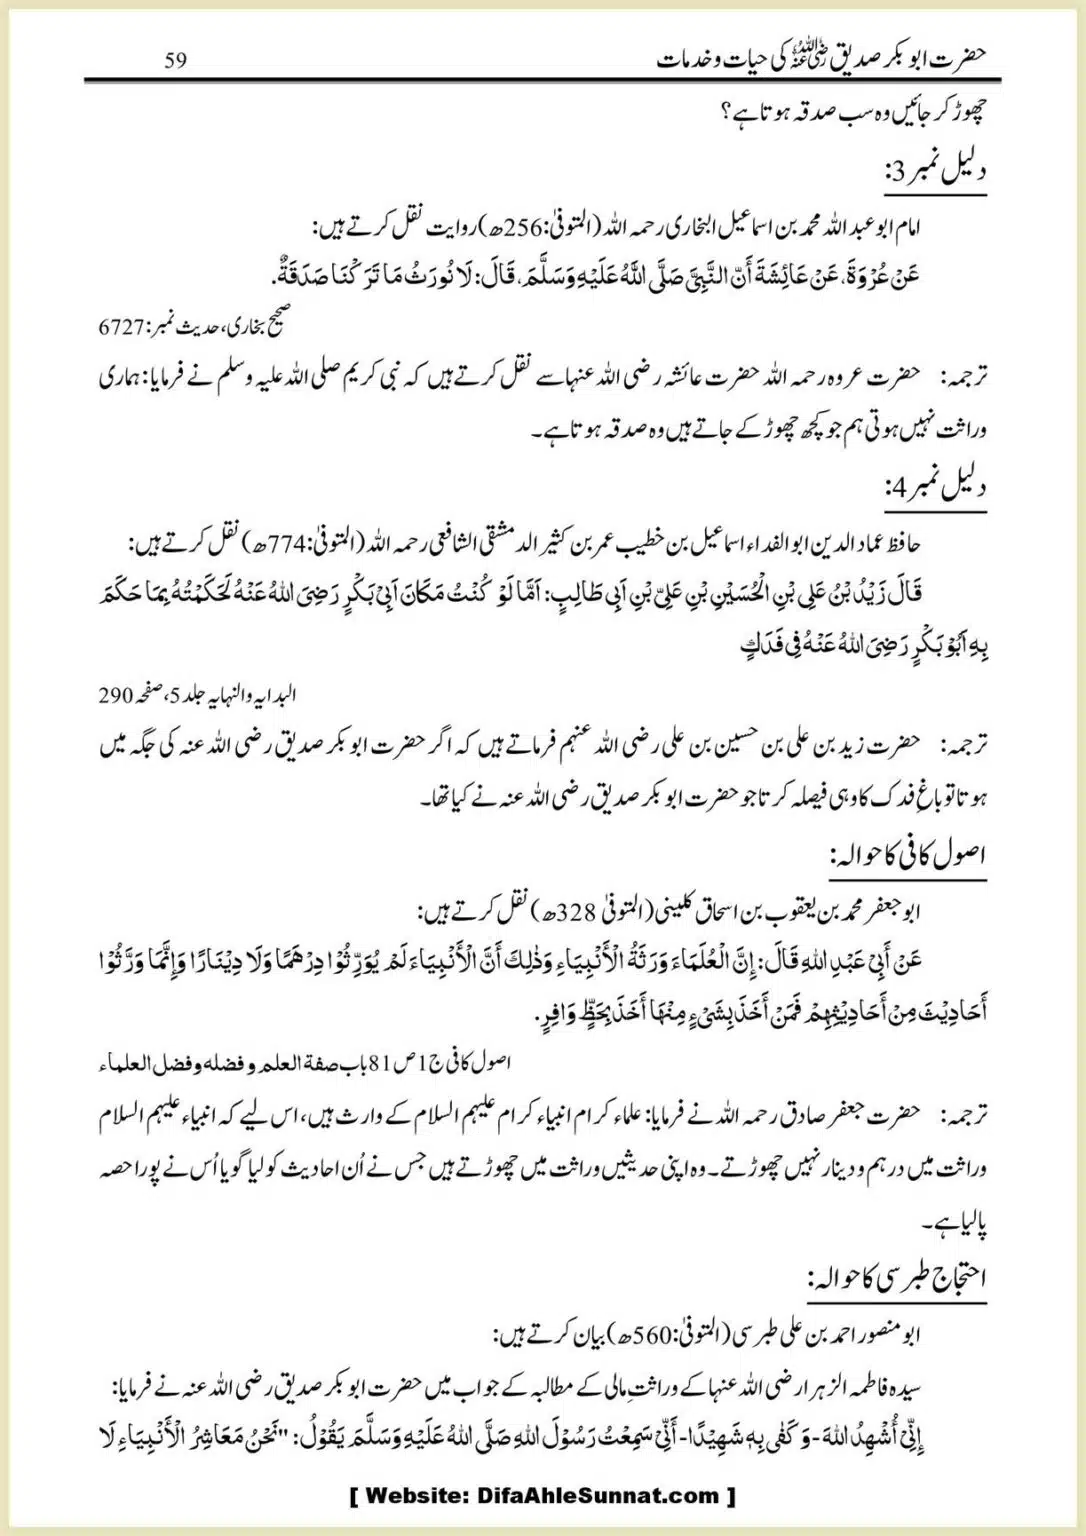 حضرت ابو بکر صدیق رضی اللہ عنہ کی حیات و خدمات
59
چھوڑ کر جائیں وہ سب صدقہ ہوتا ہے؟
دلیل نمبر 3:
امام ابو عبد اللہ محمد بن اسماعیل البخاری رحمہ اللہ (المتوفیٰ:256ھ) روایت نقل کرتے ہیں:
عَنْ عُرْوَةَ، عَنْ عَائِشَةَ أَنَّ النَّبِيَّ صَلَّى اللَّهُ عَلَيْهِ وَسَلَّمَ، قَالَ: لَا نُورَثُ مَا تَرَكْنَا صَدَقَةٌ.
صحیح بخاری، حدیث نمبر:6727
ترجمہ: حضرت عروہ رحمہ اللہ حضرت عائشہ رضی اللہ عنہا سے نقل کرتے ہیں کہ نبی کریم صلی اللہ علیہ وسلم نے فرمایا: ہماری
وراثت نہیں ہوتی ہم جو کچھ چھوڑ کے جاتے ہیں وہ صدقہ ہوتا ہے۔
دلیل نمبر 4:
حافظ عماد الدین ابو الفداء اسماعیل بن خطیب عمر بن کثیر الدمشقی الشافعی رحمہ اللہ (المتوفیٰ:774ھ) نقل کرتے ہیں:
قَالَ زَيْدُ بْنُ عَلِي بْنِ الْحُسَيْنِ بْنِ عَلِيِّ بْنِ أَبِي طَالِبٍ: أَمَّا لَوْ كُنْتُ مَكَانَ أَبِيْ بَكْرٍ رَضِيَ اللهُ عَنْهُ لَحَكَمْتُهُ بِمَا حَكَمَ
بِهِ أَبُوْ بَكْرٍ رَضِيَ اللهُ عَنْهُ فِي فَدَكٍ
البدایہ والنہایہ جلد 5، صفحہ 290
ترجمہ: حضرت زید بن علی بن حسین بن علی رضی اللہ عنہم فرماتے ہیں کہ اگر حضرت ابو بکر صدیق رضی اللہ عنہ کی جگہ میں
ہوتا تو باغِ فدک کا وہی فیصلہ کرتا جو حضرت ابو بکر صدیق رضی اللہ عنہ نے کیا تھا۔
اصول کافی کا حوالہ:
ابو جعفر محمد بن یعقوب بن اسحاق کلینی (المتوفیٰ 328ھ) نقل کرتے ہیں:
عَنْ أَبِيْ عَبْدِ اللهِ قَالَ: إِنَّ الْعُلَمَاءَ وَرَثَةُ الْأَنْبِيَاءِ وَذٰلِكَ أَنَّ الْأَنْبِيَاءَ لَمْ يُوَرِّثُوْا دِرْهَمًا وَلَا دِيْنَارًا وَإِنَّمَا وَرَّثُوْا
أَحَادِيْثَ مِنْ أَحَادِيْثِهِمْ فَمَنْ أَخَذَ بِشَيْءٍ مِنْهَا أَخَذَ بِحَظٍّ وَافِرٍ.
اصول کافی ج1 ص81 باب صفة العلم و فضله و فضل العلماء
ترجمہ: حضرت جعفر صادق رحمہ اللہ نے فرمایا: علماء کرام انبیاء کرام علیہم السلام کے وارث ہیں، اس لیے کہ انبیاء علیہم السلام
وراثت میں درہم و دینار نہیں چھوڑتے۔ وہ اپنی حدیثیں وراثت میں چھوڑتے ہیں جس نے اُن احادیث کو لیا گویا اُس نے پورا حصہ
پا لیا ہے۔
احتجاج طبرسی کا حوالہ:
ابو منصور احمد بن علی طبرسی (المتوفیٰ:560ھ) بیان کرتے ہیں:
سیدہ فاطمہ الزہرا رضی اللہ عنہا کے وراثتِ مالی کے مطالبہ کے جواب میں حضرت ابو بکر صدیق رضی اللہ عنہ نے فرمایا:
إِنِّيْ أُشْهِدُ اللهَ - وَ كَفٰى بِهٖ شَهِيْدًا - أَنِّيْ سَمِعْتُ رَسُوْلَ اللهِ صَلَّى اللهُ عَلَيْهِ وَسَلَّمَ يَقُوْلُ: "نَحْنُ مَعَاشِرُ الْأَنْبِيَاءِ لَا
[ Website: DifaAhleSunnat.com ]